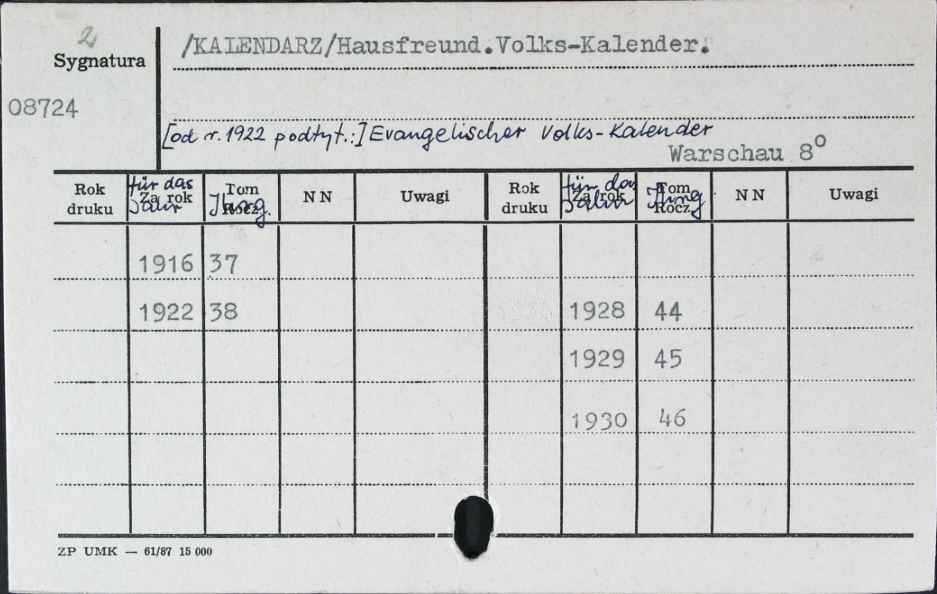 2
Sygnatura
08724
/KALENDARZ/Hausfreund.Volks-Kalender.
[od r. 1922 podtyt.:] Evangelischer Volks-Kalender
Warschau 8°
Rok druku | für das Jahr Za rok | Tom Rocz. Jhrg. | N N | Uwagi | Rok druku | für das Jahr Za rok | Tom Rocz. Jhrg | N N | Uwagi
1916 37
1922 38 1928 44
1929 45
1930 46
ZP UMK — 61/87 15 000